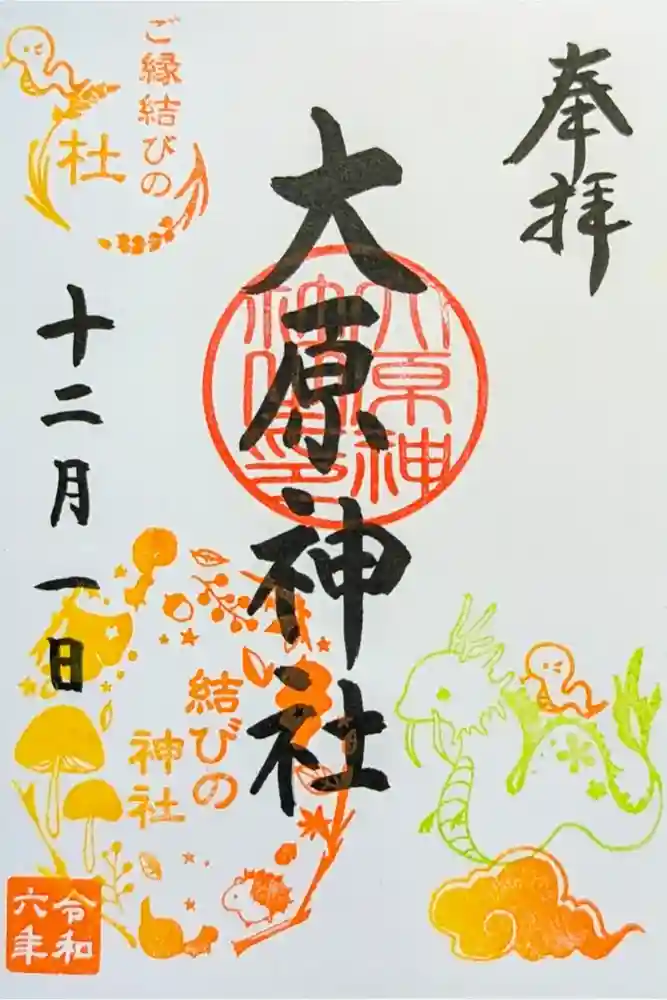 奉拝
大原神社
大原神
ご縁結びの
杜
十二月一日
結びの
神社
令和
六年